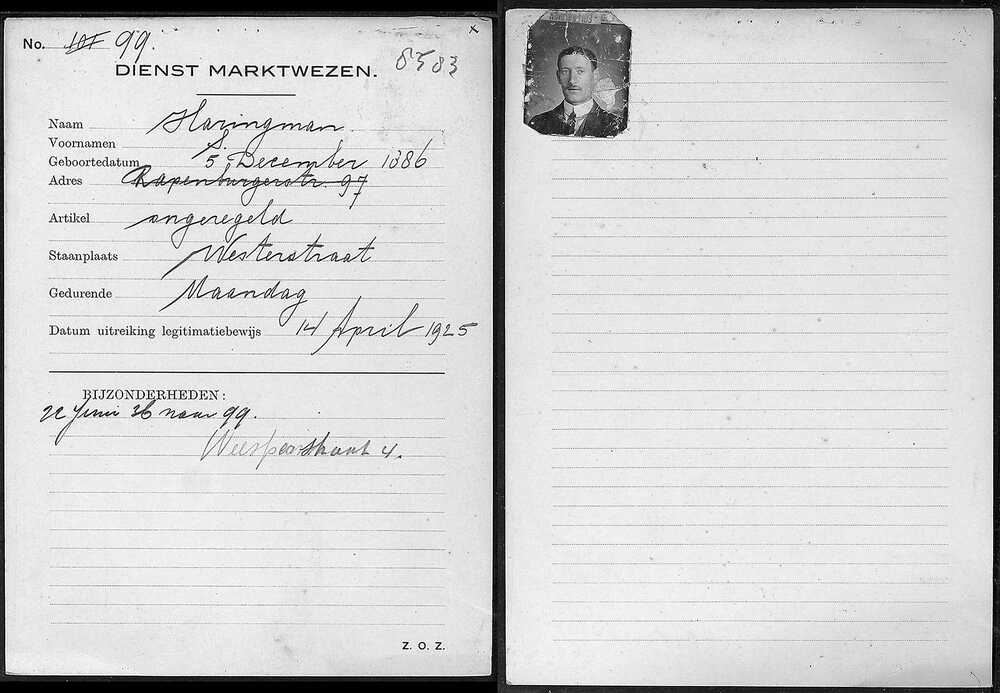 No. 101 99.
8583
DIENST MARKTWEZEN.
Naam Haringman.
Voornamen S.
Geboortedatum 5 December 1886
Adres Rapenburgerstr. 97
Artikel ongeregeld
Staanplaats Westerstraat
Gedurende Maandag
Datum uitreiking legitimatiebewijs 14 April 1925
BIJZONDERHEDEN:
22 Juni 36 naar 99.
Weesperstraat 4.
Z. O. Z.